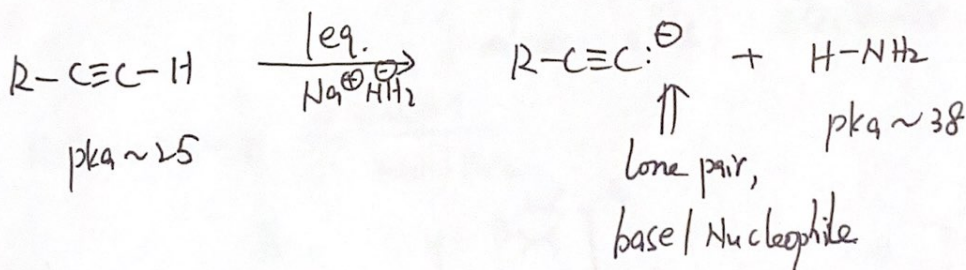 R-C≡C-H 1eq. Na⊕ ⊖NH2 R-C≡C:⊖ + H-NH2
pka~25 pka~38
lone pair,
base/Nucleophile